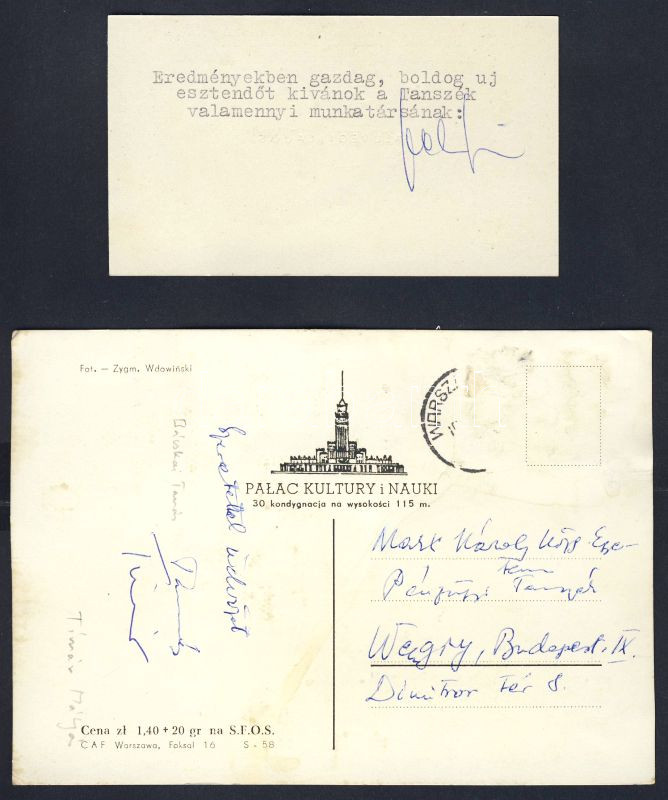 Eredményekben gazdag, boldog uj
esztendőt kivánok a Tanszék
valamennyi munkatársának:
Fot. — Zygm. Wdowiński
WARSZ
PAŁAC KULTURY i NAUKI
30 kondygnacja na wysokości 115 m.
Bácskai Tamás
Szeretettel üdvözöl
Tamás
Tímár Mátyás
Marx Károly Közg Egye-
tem
Pénzügyi Tanszék
Węgry, Budapest, IX.
Dimitrov Tér 8.
Cena zł 1,40 + 20 gr na S.F.O.S.
CAF Warszawa, Foksal 16 S - 58